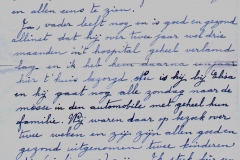 en allen eens te zien.
Ja, vader leeft nog en is goed en gezond
alhoewel dat hij over twee jaar wel drie
maanden in't hospital geheel verlamd
lag en ik het hem daarna
hier t'huis bezorgd. Nu is hij bij Elisa
en hij gaat nog alle zondag naar de
messe in den automobile met geheel hun
familie. Wij waren daar op bezoek over
twee weken en zij zijn allen goed en
gezond uitgenomen twee kinderen